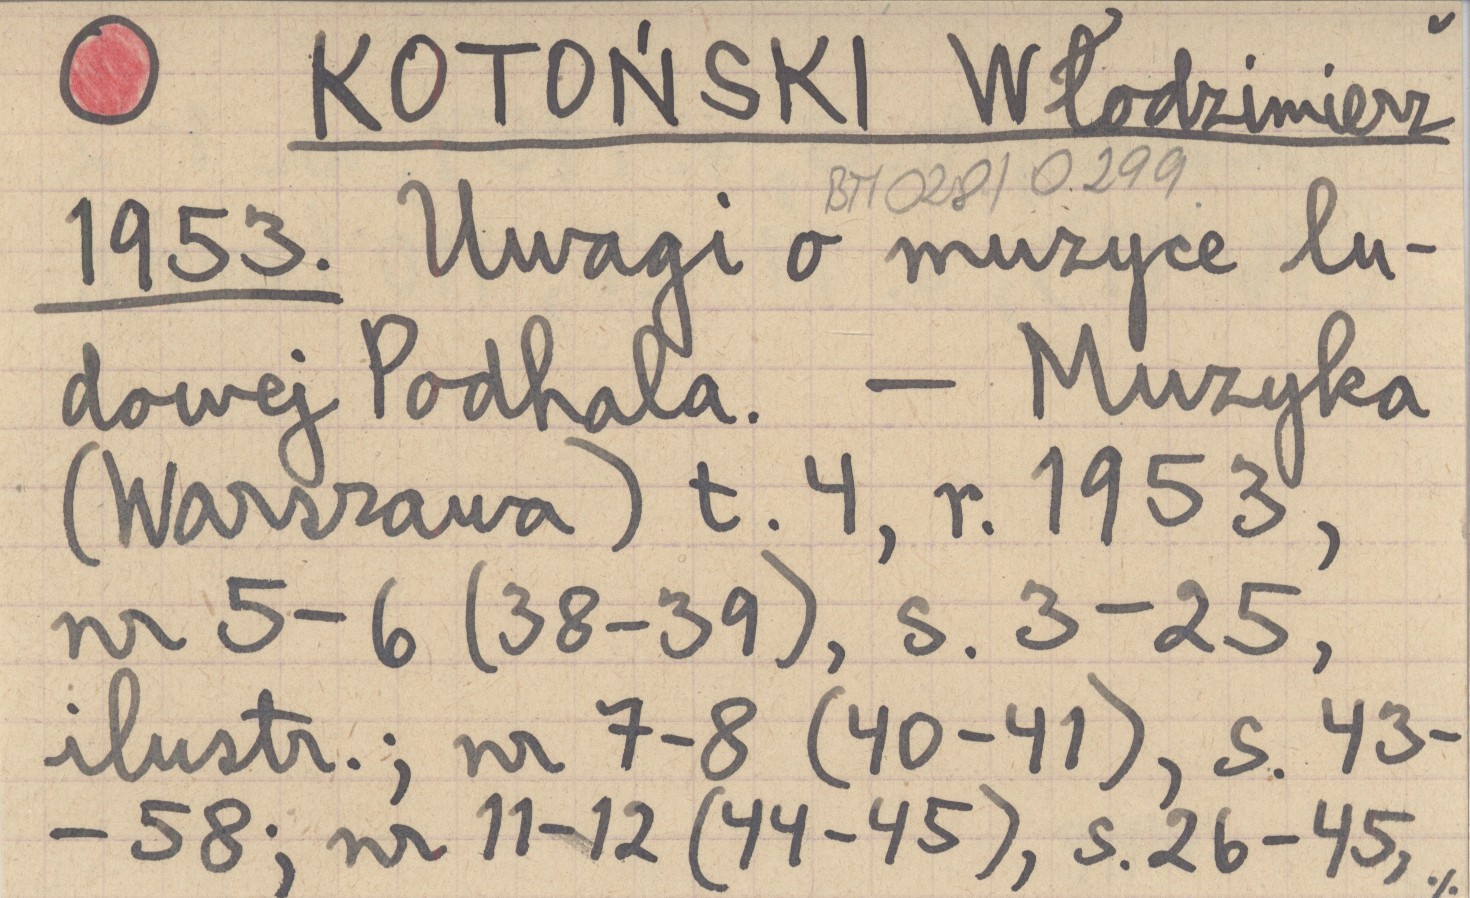 KOTOŃSKI Włodzimierz
BM 0281 0.299
1953. Uwagi o muzyce lu-
dowej Podhala. — Muzyka
(Warszawa) t. 4, r. 1953,
nr 5-6 (38-39), s. 3-25,
ilustr.; nr 7-8 (40-41), s. 43-
-58; nr 11-12 (44-45), s. 26-45,
./.